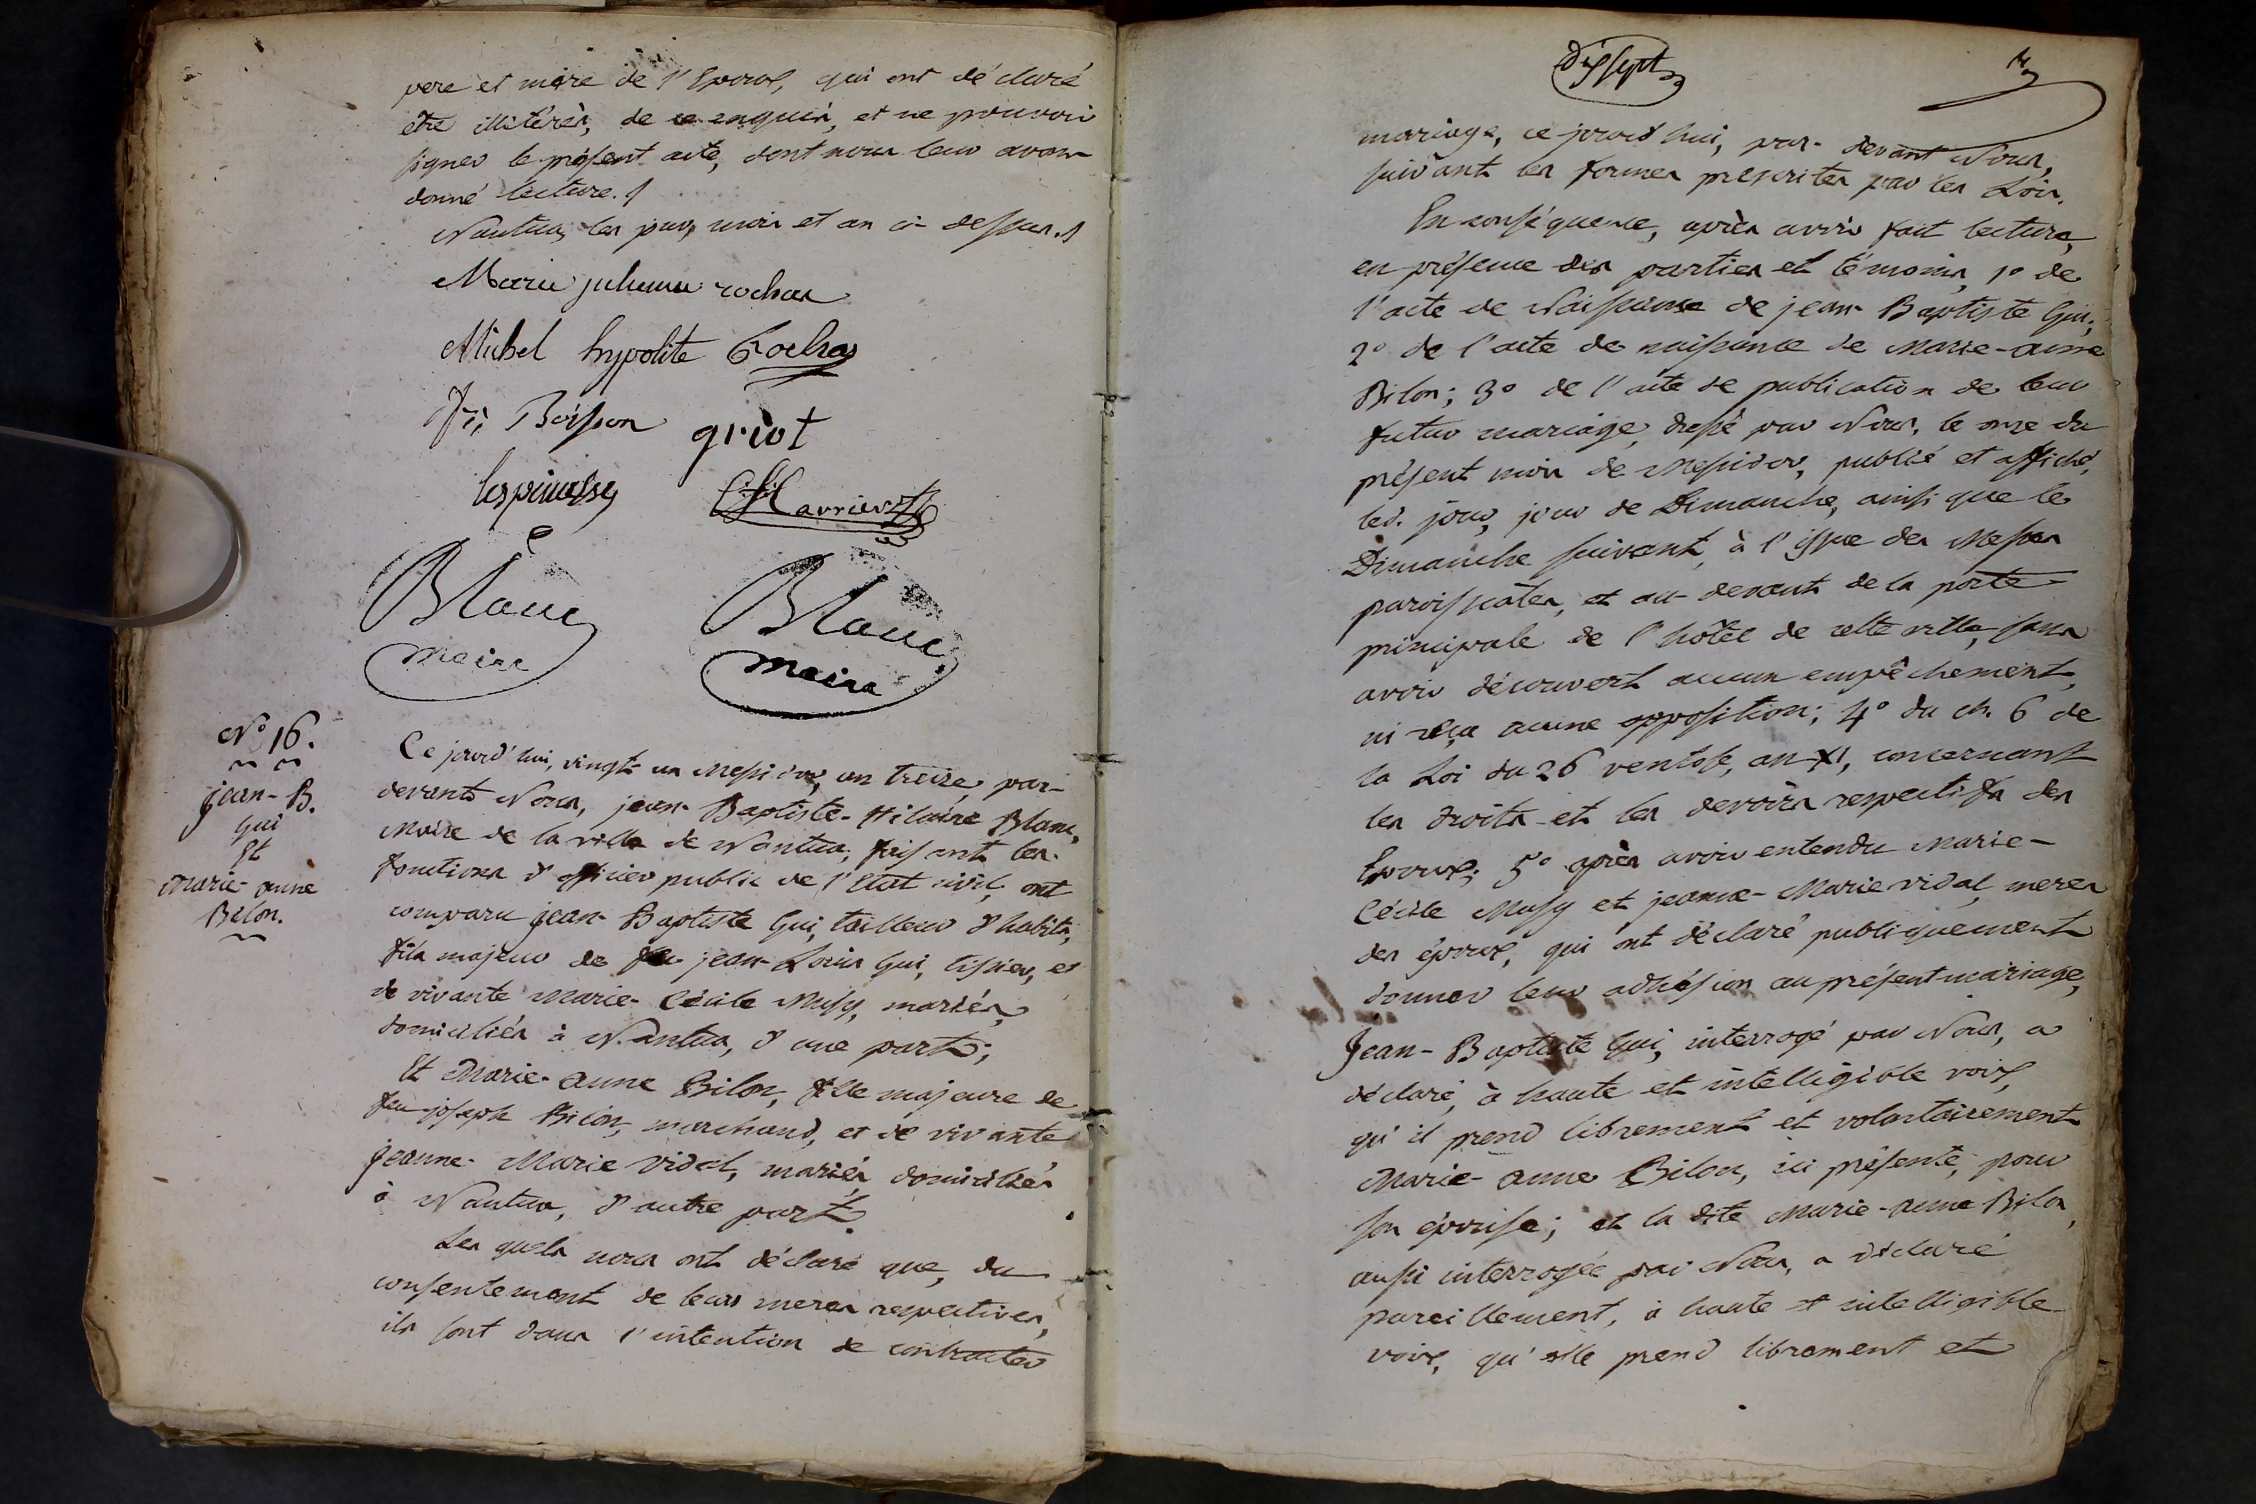 pere et mère de l'Epoux, qui ont déclaré
être illitérés, de ce enquis, et ne pouvoir
signer le présent acte, dont nous leur avons
donné lecture.
Nantua, les jour, mois et an ci-dessus.
Marie julienne rochas
Michel hypolite Rochas
Buisson griot
lespinasse
Blanc Blanc
maire maire
N.o 16.
jean-B.
Gui
Et
marie-anne
Bilon.
Ce jourd'hui, vingt-un Messidor, an treize, par-
devant Nous, jean-Baptiste-Hilaire Blanc,
Maire de la ville de Nantua, faisant les
fonctions d'officier public de l'Etat civil, ont
comparu jean-Baptiste Gui, tailleur d'habits,
fils majeur de feu jean-Louis Gui, tissier, et
de vivante Marie-Cécile Musy, mariés,
domiciliés à Nantua, d'une part;
Et Marie-anne Bilon, fille majeure de
feu joseph Bilon, marchand, et de vivante
jeanne-Marie Vidal, mariés, domiciliés
à Nantua, d'autre part.
Les quels nous ont déclaré que, du
consentement de leurs meres respectives,
ils sont dans l'intention de contracter
dixsept
17
mariage, ce jourd'hui, par-devant Nous,
suivant les formes prescrites par les Lois.
En conséquence, après avoir fait lecture,
en présence des parties et témoins, 1.o de
l'acte de Naissance de jean-Baptiste Gui;
2.o de l'acte de naissance de Marie-anne
Bilon; 3.o de l'acte de publication de leur
futur mariage, dressé par Nous, le onze du
présent mois de Messidor, publié et affiché,
led. jour, jour de Dimanche, ainsi que le
Dimanche suivant, à l'issue des Messes
paroissiales, et au-devant de la porte
principale de l'hôtel de cette ville, sans
avoir découvert aucun empêchement,
ni reçu aucune opposition; 4.o du ch. 6 de
la Loi du 26 ventose, an XI, concernant
les droits et les devoirs respectifs des
Epoux; 5.o après avoir entendu Marie-
Cécile Musy et jeanne-Marie vidal, meres
des époux, qui ont déclaré publiquement
donner leur adhésion au présent mariage,
Jean-Baptiste Gui, interrogé par Nous, a
déclaré, à haute et intelligible voix,
qu'il prend librement et volontairement
Marie-anne Bilon, ici présente, pour
son épouse; et la dite Marie-anne Bilon,
aussi interrogée par Nous, a déclaré
pareillement, à haute et intelligible
voix, qu'elle prend librement et